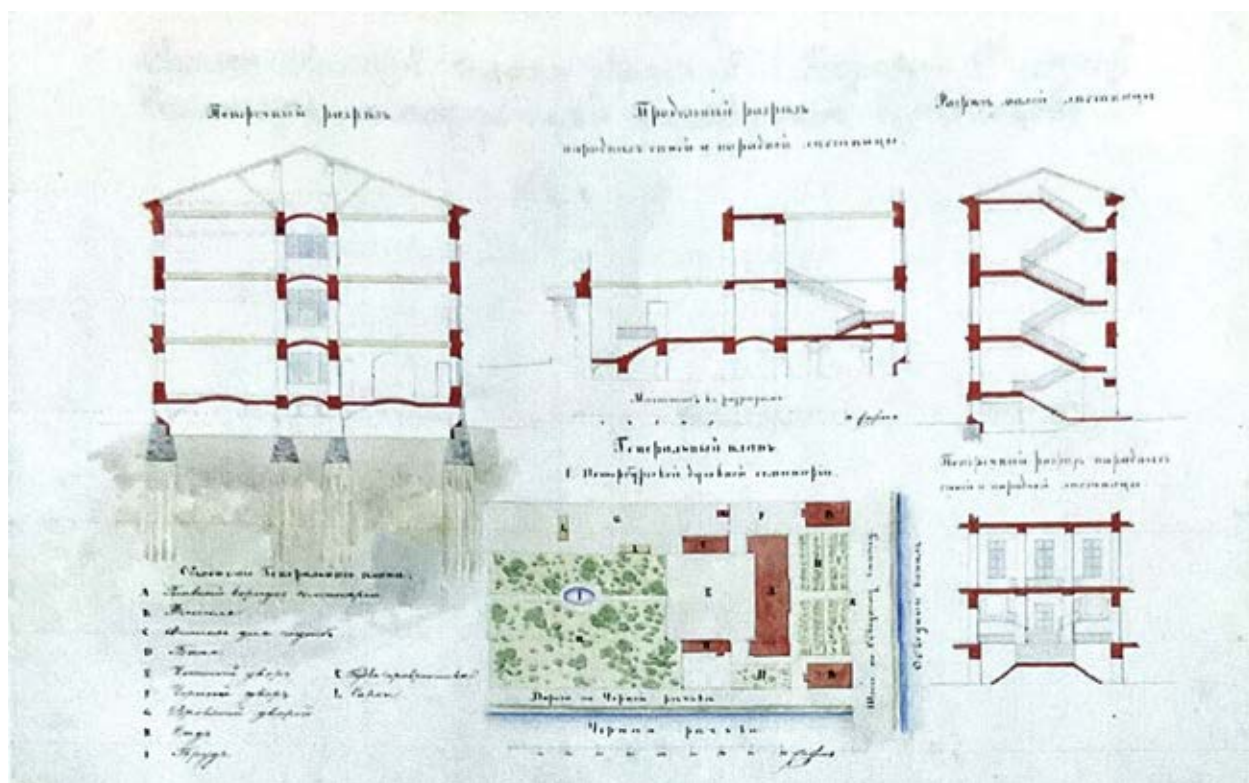 Поперечный разрѣзъ
Продольный разрѣзъ
парадныхъ сѣней и парадной лѣстницы.
Разрѣзъ малой лѣстницы
Масштабъ къ разрѣзамъ
Генеральный планъ
С. Петербургской духовной семинаріи.
Поперечный разрѣзъ парадныхъ
сѣней и парадной лѣстницы
Объясненіе Генеральнаго плана.
A Главный корпусъ семинаріи
B Флигеля
C
D Баня
E дворъ
F Черный дворъ
G Дровяной дворъ
H Садъ
I Прудъ
K
L Сараи
Дорога по Черной рѣчкѣ
Черная рѣчка
Шоссе по Обводному каналу
Обводный каналъ